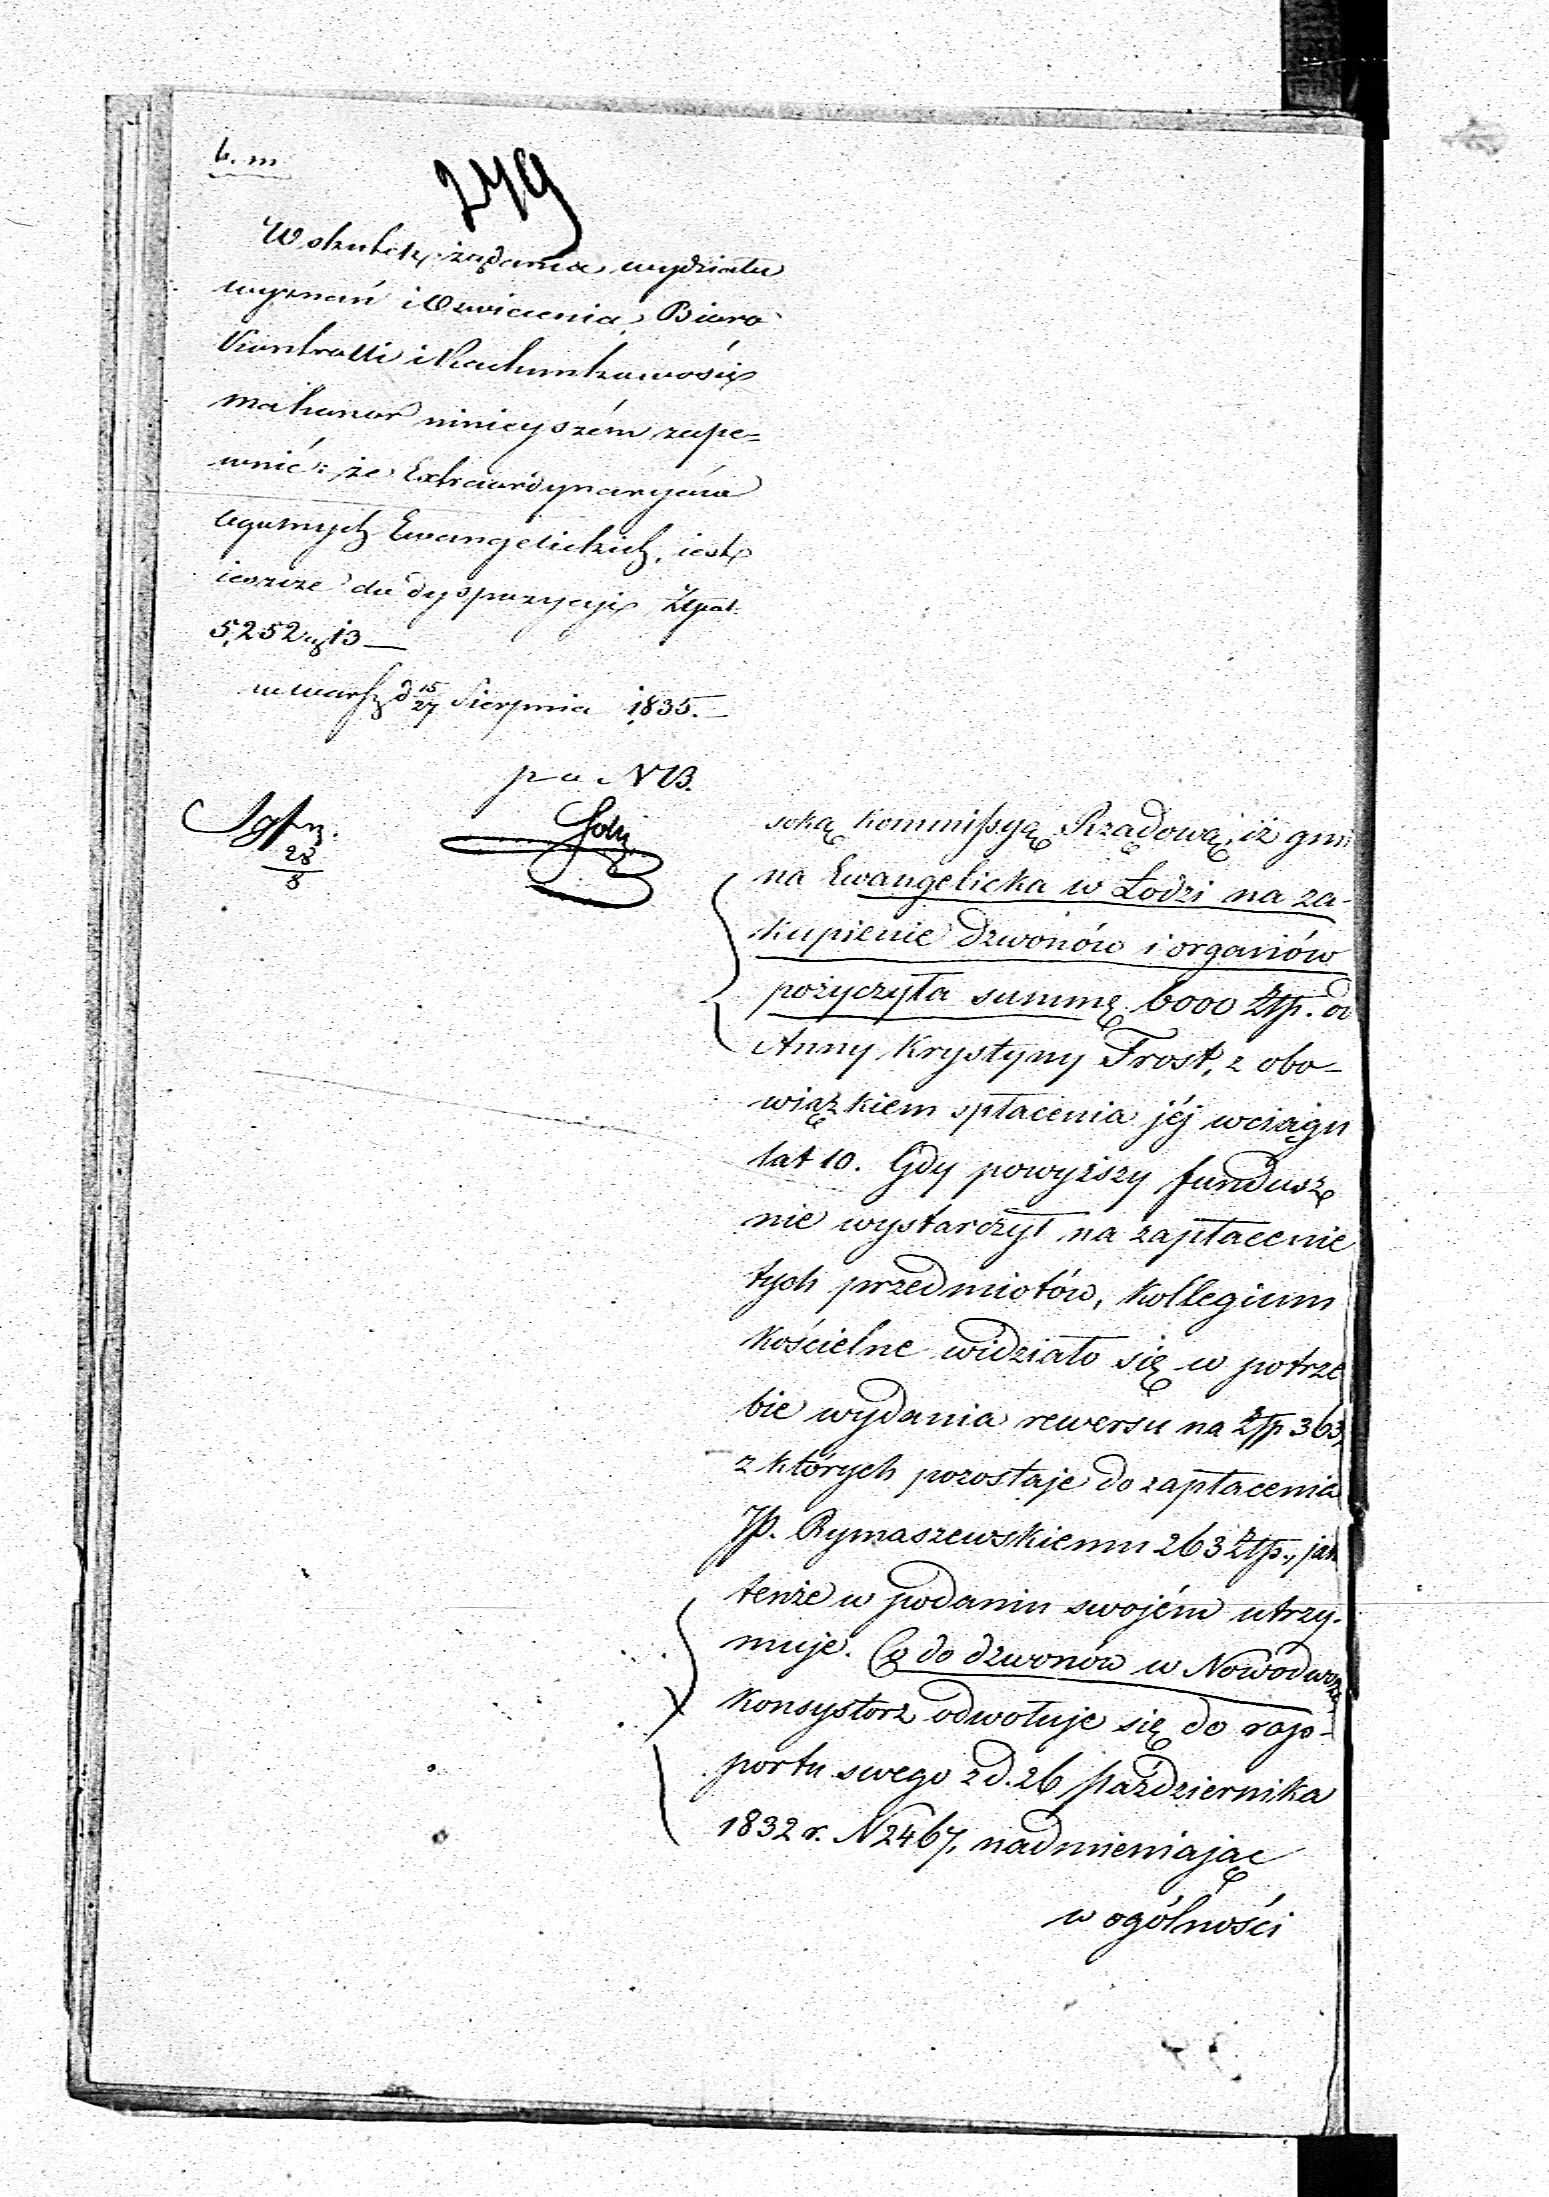 b. m
249
W skutek żądania wydziału
wyznań i Oswiecenia, Biuro
Kontrolli i Rachunkowości
ma honor ninieyszém zape=
wnić: że Extraordynaryów
ogólnych Ewangelickich, iest
ieszcze do dyspozycyi Złpol.
5,252 gr 13 —
w Warsz d 15/27 Sierpnia 1835. —
p. o. NB.
28/8
soką Kommissyą Rządową, iż gmi
na Ewangelicka w Łodzi na za-
kupienie dzwonów i organów
pożyczyła summę 6000 Złp. od
Anny Krystyny Frost, z obo-
wiązkiem spłacenia jéj w ciągu
lat 10. Gdy powyższy fundusz
nie wystarczył na zapłacenie
tych przedmiotów, Kollegium
Kościelne widziało się w potrze
bie wydania rewersu na Złp 363,
z których pozostaje do zapłacenia
JP. Rymaszewskiemu 263 Złp., jak
tenże w podaniu swojém utrzy-
muje. Co do dzwonów w Nowodworze
Konsystorz odwołuje się do rap-
portu swego z d. 26 Października
1832 r. N 2467, nadmieniając
w ogólności